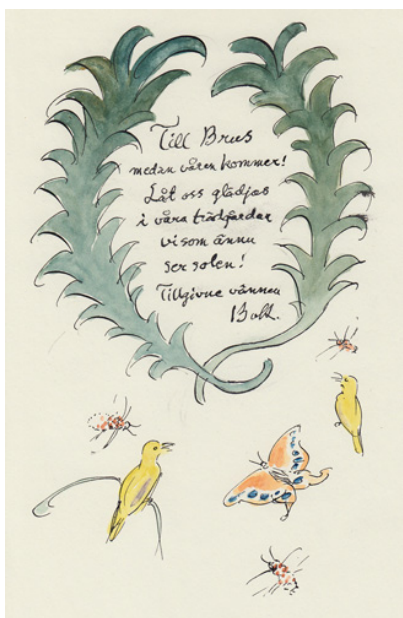 Till Brus
medan våren kommer!
Låt oss glädjas
i våra trädgårdar
vi som ännu
ser solen!
Tillgivne vännen